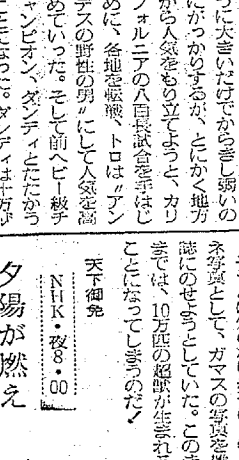 うに大きいだけでからきし弱いの
にがっかりするが、とにかく地方
から人気をもり立てようと、カリ
フォルニアの八百長試合を手はじ
めに、各地を転戦、トロは〃アン
デスの野性の男〃にして人気を高
めていった。そして前ヘビー級チ
ャンピオン、ダンディとたたかう
ことになった。ダンディは十万ド
ネ写真として、ガマスの写真を雑
誌にのせようとしていた。このま
までは、10万匹の超獣が生まれる
ことになってしまうのだ!
天下御免
NHK・夜8・00
夕陽が燃え